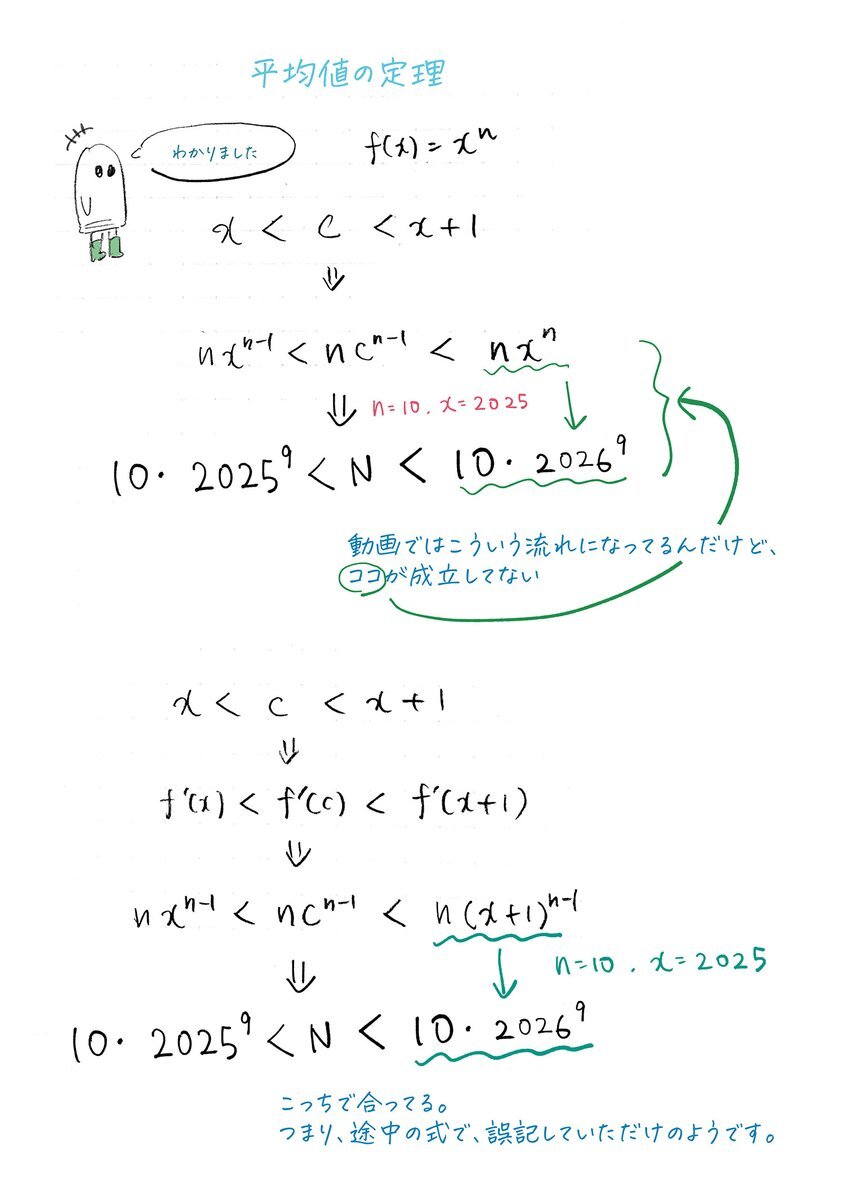 平均値の定理
わかりました
f(x) = xⁿ
x < c < x+1
⇓
nxⁿ⁻¹ < ncⁿ⁻¹ < nxⁿ
⇓ n=10, x=2025 ↓
10・2025⁹ < N < 10・2026⁹
動画ではこういう流れになってるんだけど、
ココが成立してない
x < c < x+1
⇓
f'(x) < f'(c) < f'(x+1)
⇓
nxⁿ⁻¹ < ncⁿ⁻¹ < n(x+1)ⁿ⁻¹
⇓ ↓ n=10, x=2025
10・2025⁹ < N < 10・2026⁹
こっちで合ってる。
つまり、途中の式で、誤記していただけのようです。